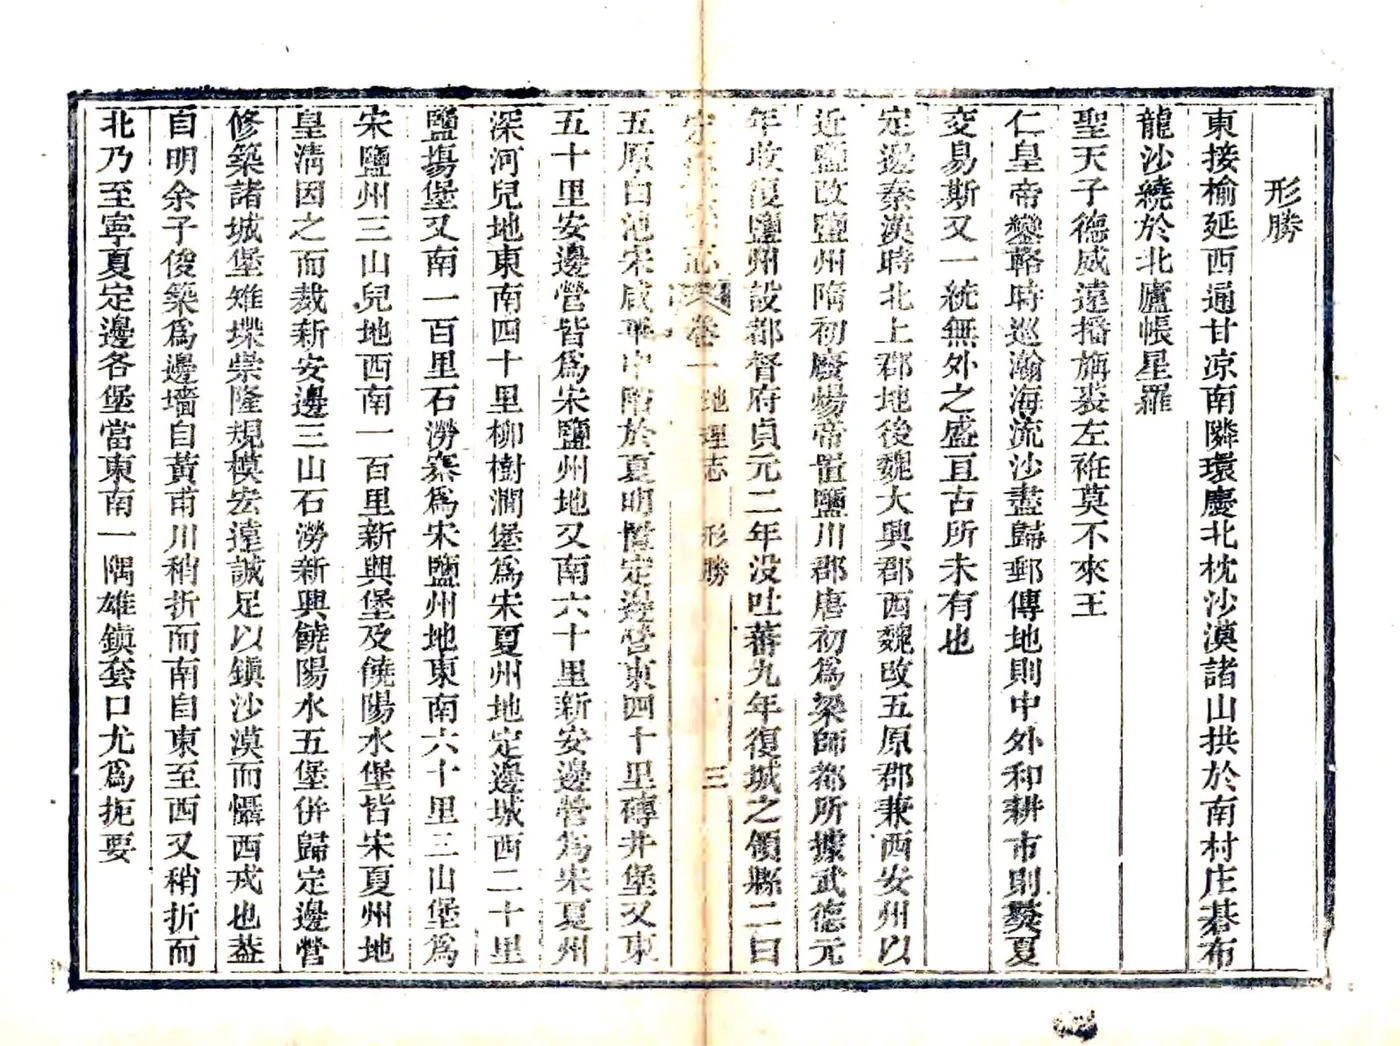 形勝
東接榆延西通甘凉南隣環慶北枕沙漠諸山拱於南村庄碁布
龍沙繞於北廬帳星羅
聖天子德威遠播旃裘左袵莫不來王
仁皇帝鑾輅時巡瀚海流沙盡歸郵傳地則中外和耕市則獒夏
交易斯又一統無外之盛亘古所未有也
定邊秦漢時北上郡地後魏大興郡西魏改五原郡兼西安州以
近鹽改鹽州隋初廢煬帝置鹽川郡唐初爲梁師都所據武德元
年收復鹽州設都督府貞元二年没吐蕃九年復城之領縣二曰
定邊縣志 卷一 地理志 形勝 三
五原白池宋咸平中陷於夏明置定邊營東四十里磚井堡又東
五十里安邊營皆爲宋鹽州地又南六十里新安邊營爲宋夏州
深河兒地東南四十里柳樹澗堡爲宋夏州地定邊城西二十里
鹽塲堡又南一百里石澇寨爲宋鹽州地東南六十里三山堡爲
宋鹽州三山兒地西南一百里新興堡及饒陽水堡皆宋夏州地
皇清因之而裁新安邊三山石澇新興饒陽水五堡併歸定邊營
修築諸城堡雉堞崇隆規模宏遠誠足以鎮沙漠而懾西戎也葢
自明余子俊築爲邊墻自黃甫川稍折而南自東至西又稍折而
北乃至寧夏定邊各堡當東南一隅雄鎮套口尤爲扼要